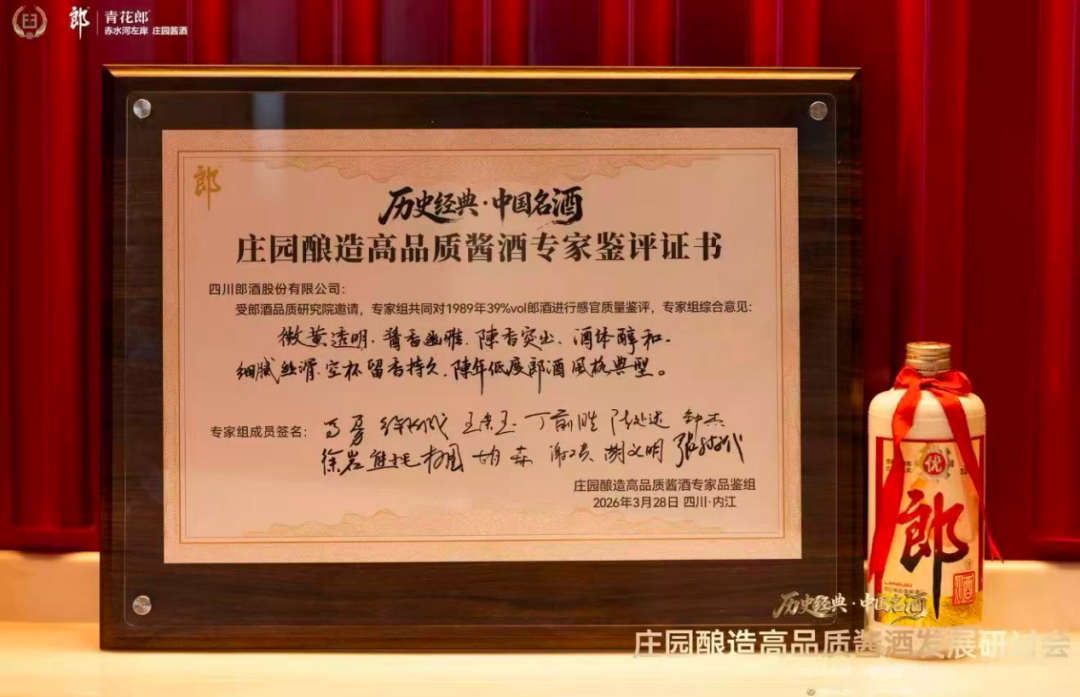 郎
青花郎
赤水河左岸 庄园酱酒
郎
历史经典·中国名酒
庄园酿造高品质酱酒专家鉴评证书
四川郎酒股份有限公司：
受郎酒品质研究院邀请，专家组共同对1989年39%vol郎酒进行感官质量鉴评，专家组综合意见：
微黄透明、酱香幽雅、陈香突出、酒体醇和、
细腻丝滑、空杯留香持久、陈年低度郎酒风格典型。
专家组成员签名：
徐岩 胡森 胡义明
庄园酿造高品质酱酒专家品鉴组
2026年3月28日 四川·内江
优
郎
历史经典·中国名酒
庄园酿造高品质酱酒发展研讨会